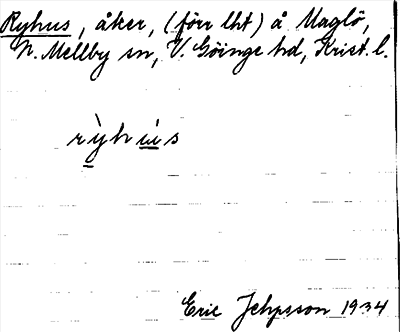 Ryhus, åker, (förr lht) å Maglö,
N. Mellby sn, V. Göinge hd, Krist. l.
rỳhús
Eric Jehpsson 1934